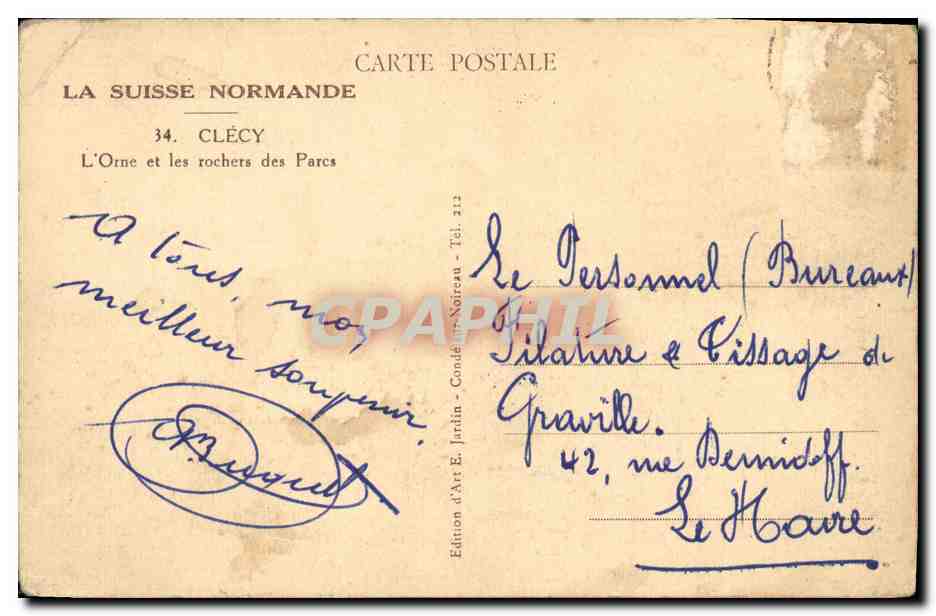 CARTE POSTALE
LA SUISSE NORMANDE
34. CLÉCY
L'Orne et les rochers des Parcs
A tous, mon
meilleur souvenir.
Edition d'Art E. Jardin - Condé-sur-Noireau - Tel. 212
CPAPHIL
Le Personnel (Bureaux)
Filature & Tissage de
Graville.
42, rue Demidoff.
Le Havre